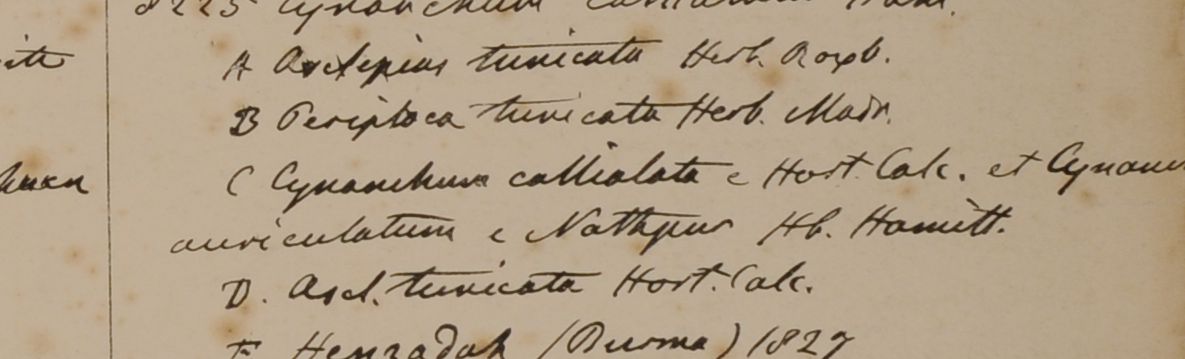 8225 Cynanchum Ham.
A Asclepias tunicata Herb. Roxb.
B Periploca tunicata Herb. Madr.
C Cynanchum calliolata e Hort. Calc. et Cynanc
auriculatum e Nathpur Hb. Hamilt.
D. Ascl. tunicata Hort. Calc.
E Henzadah (Burma) 1827